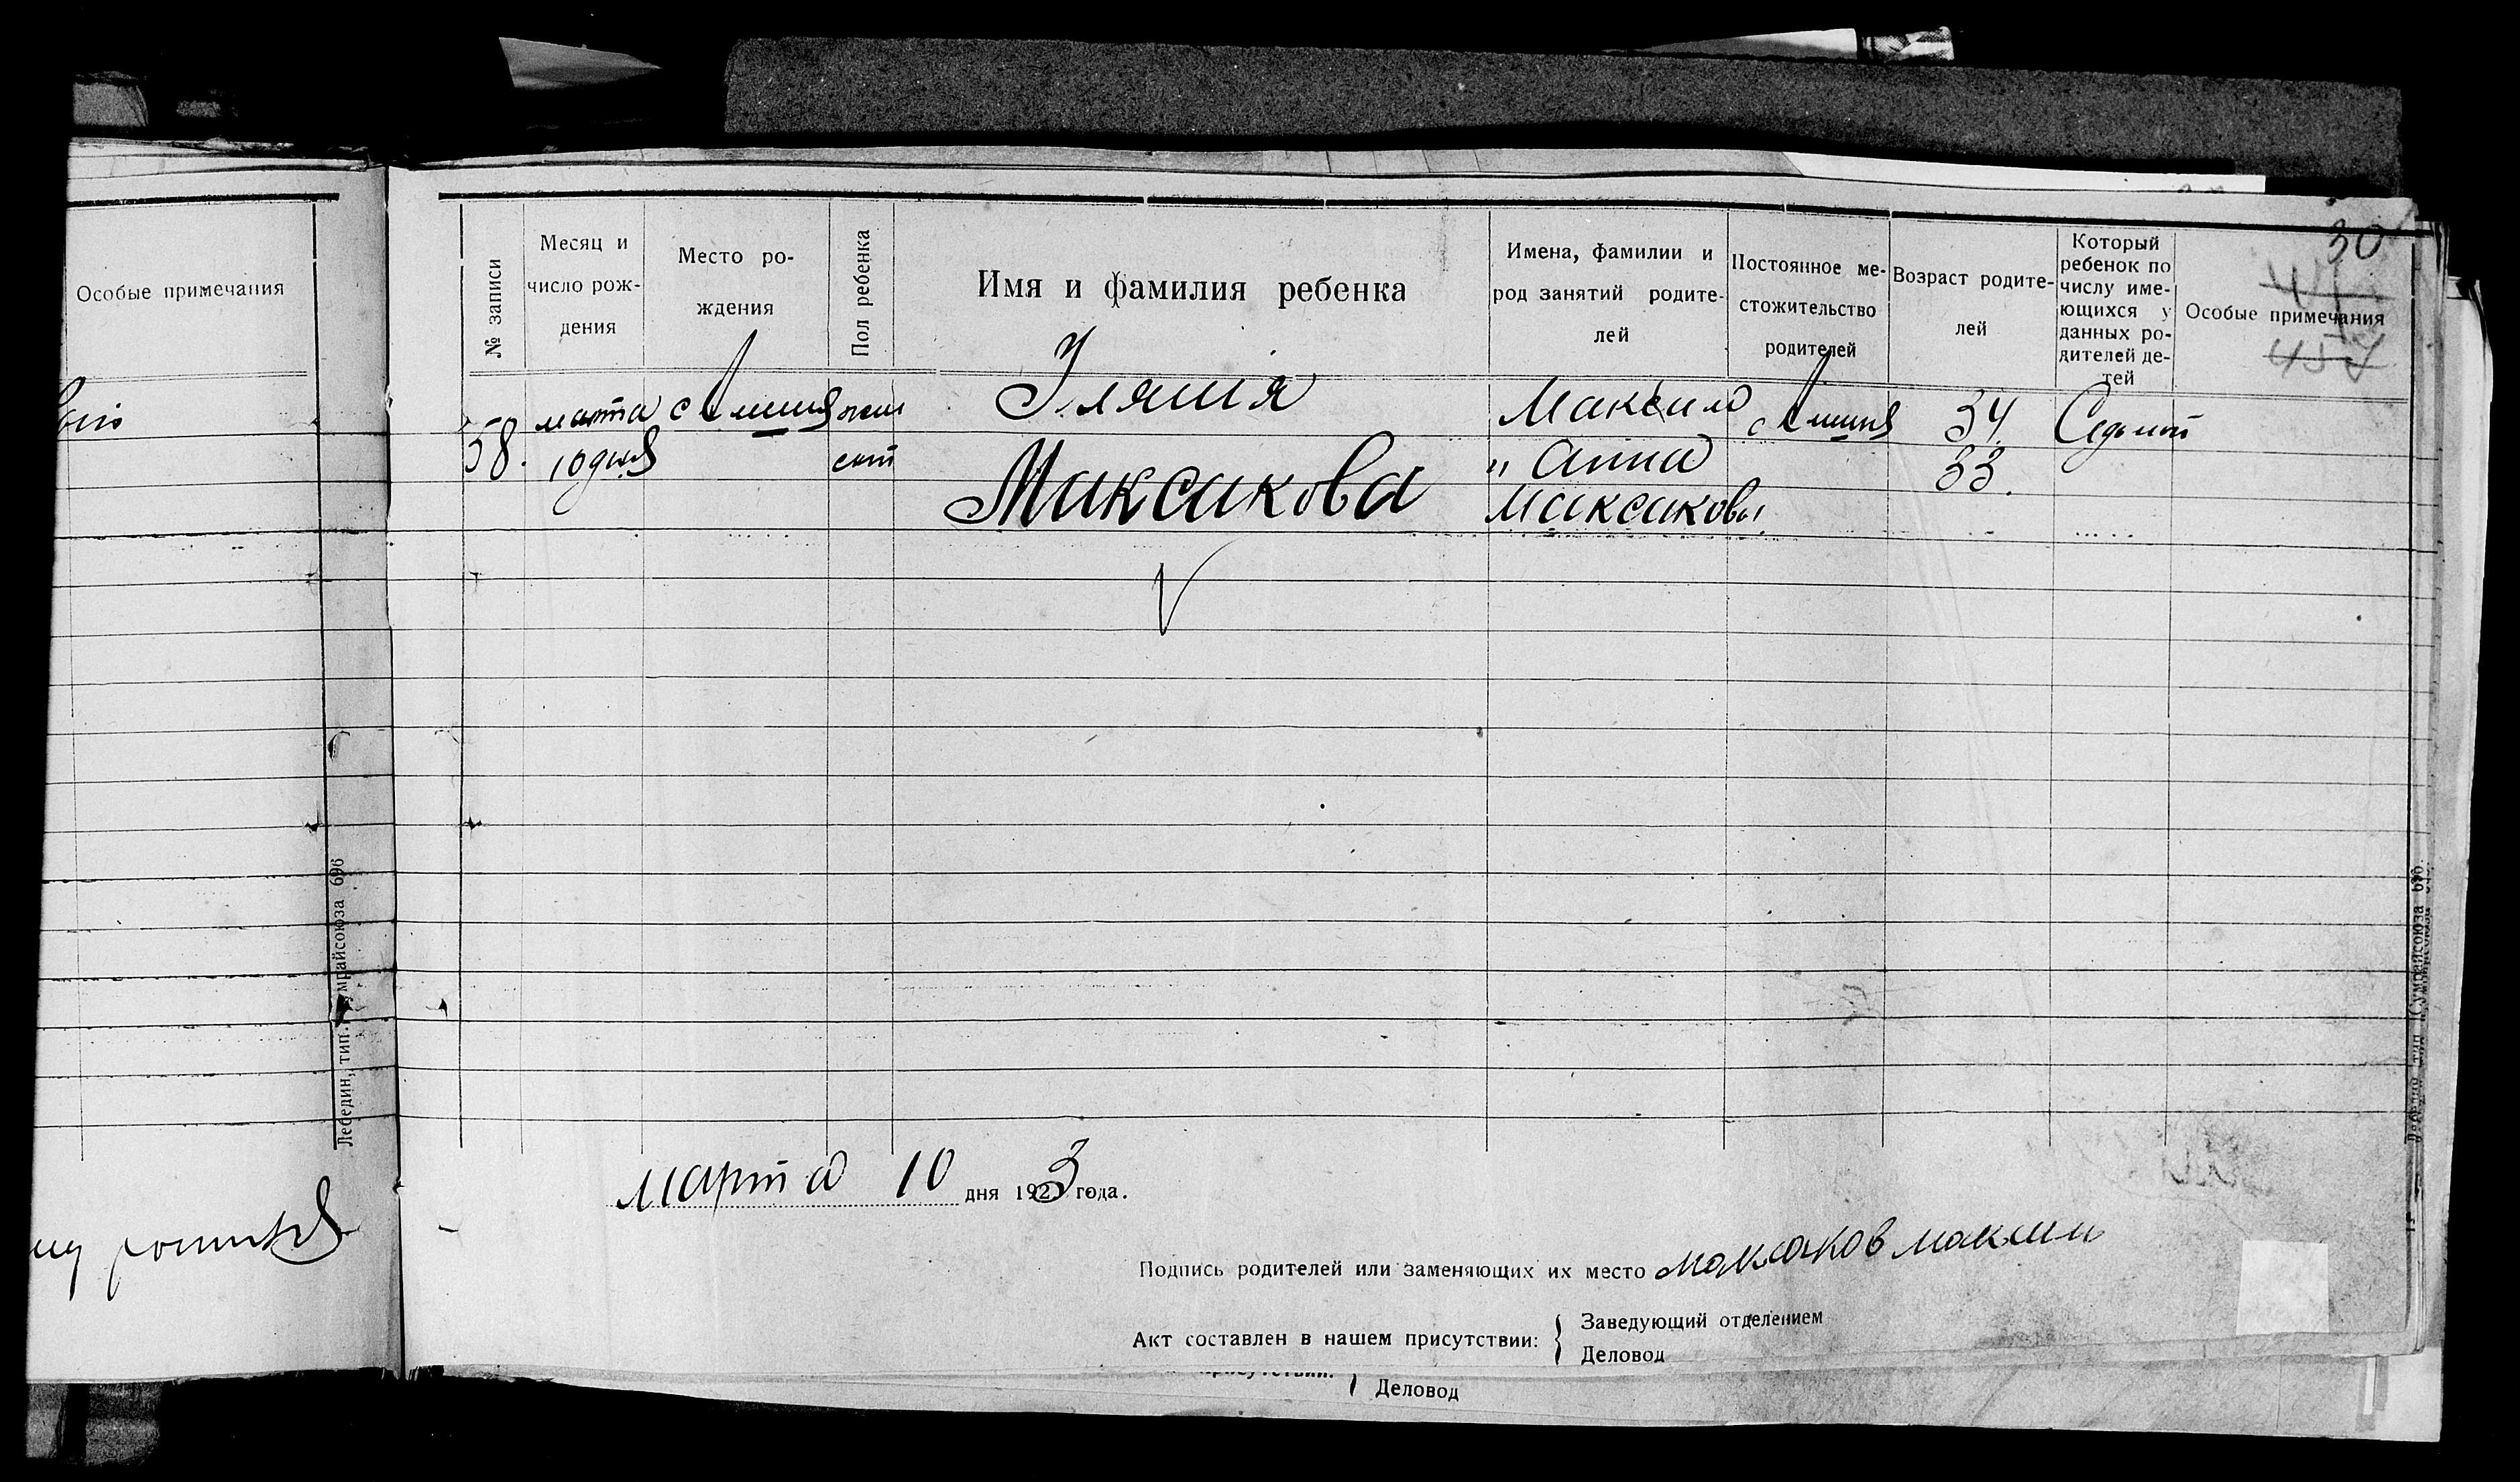 Особые примечания
Лебедин, тип. Сумрайсоюза 696
30
41
457
№ записи
Месяц и
число рож-
дения
Место ро-
ждения
Пол ребенка
Имя и фамилия ребенка
Имена, фамилии и
род занятий родите-
лей
Постоянное ме-
стожительство
родителей
Возраст родите-
лей
Который
ребенок по
числу име-
ющихся у
данных ро-
дителей де-
тей
Особые примечания
58.
марта
10 дня
с
жен
ский
Максакова
Максим
" Анна
Максаковы
с
34.
33.
Седьмой
марта 10 дня 1923 года.
Подпись родителей или заменяющих их место Максаков Максим
Акт составлен в нашем присутствии:
Заведующий отделением
Деловод
присутствии:
Деловод
Лебедин тип. Сумрайсоюза 696.